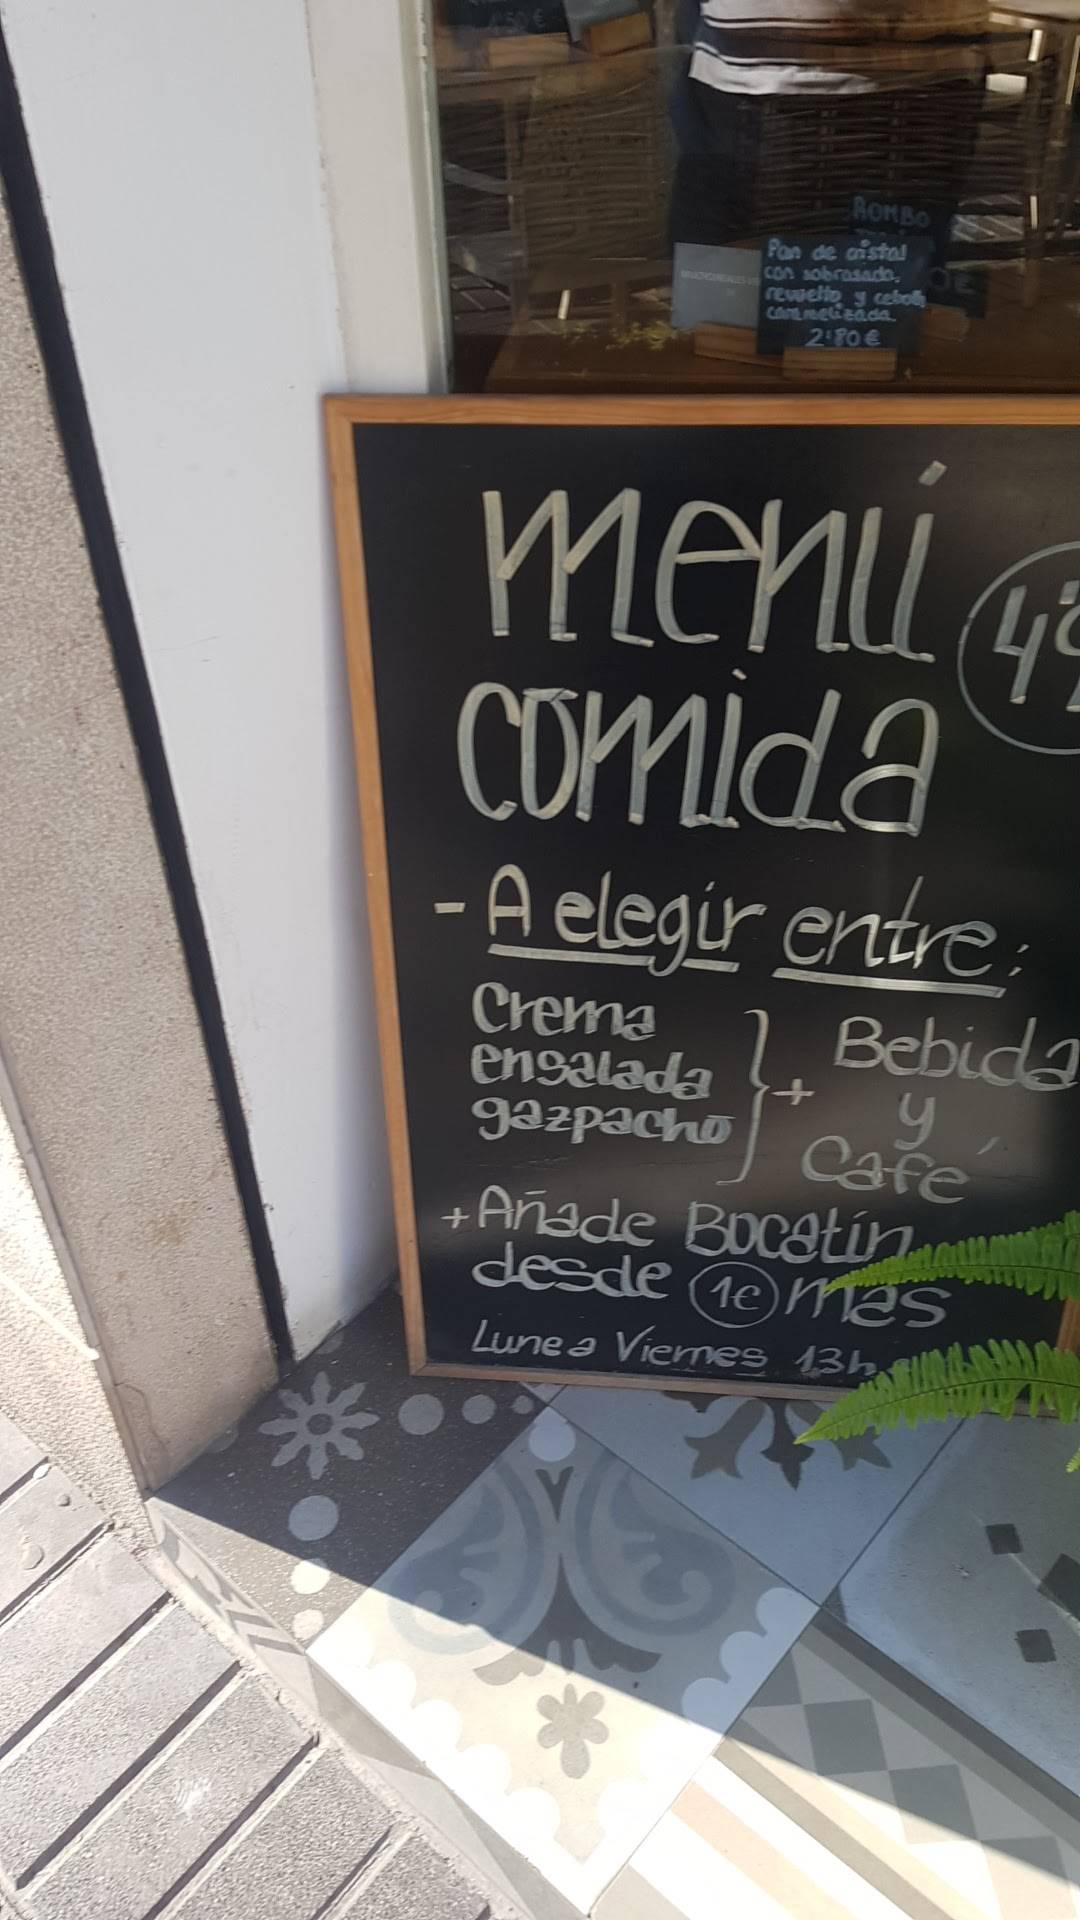 1'50€
ROMBO
Pan de cristal
con sobrasada,
revuelto y cebolla
caramelizada.
2'80€
menú
comida
- A elegir entre:
Crema
ensalada
gazpacho
} + Bebida
y
Café
+ Añade Bocatín
desde 1€ mas
Lune a Viernes 13h